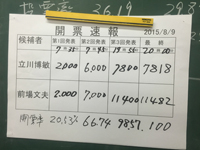 開票速報 2015/8/9
候補者 第1回発表 第2回発表 第3回発表 最終
7=35 19=55 20=00
立川博敏 2,000 6,000 7800 7818
前場文夫 2,000 7,000 11400 11482
開票率 20,53% 66.74 98.57 100